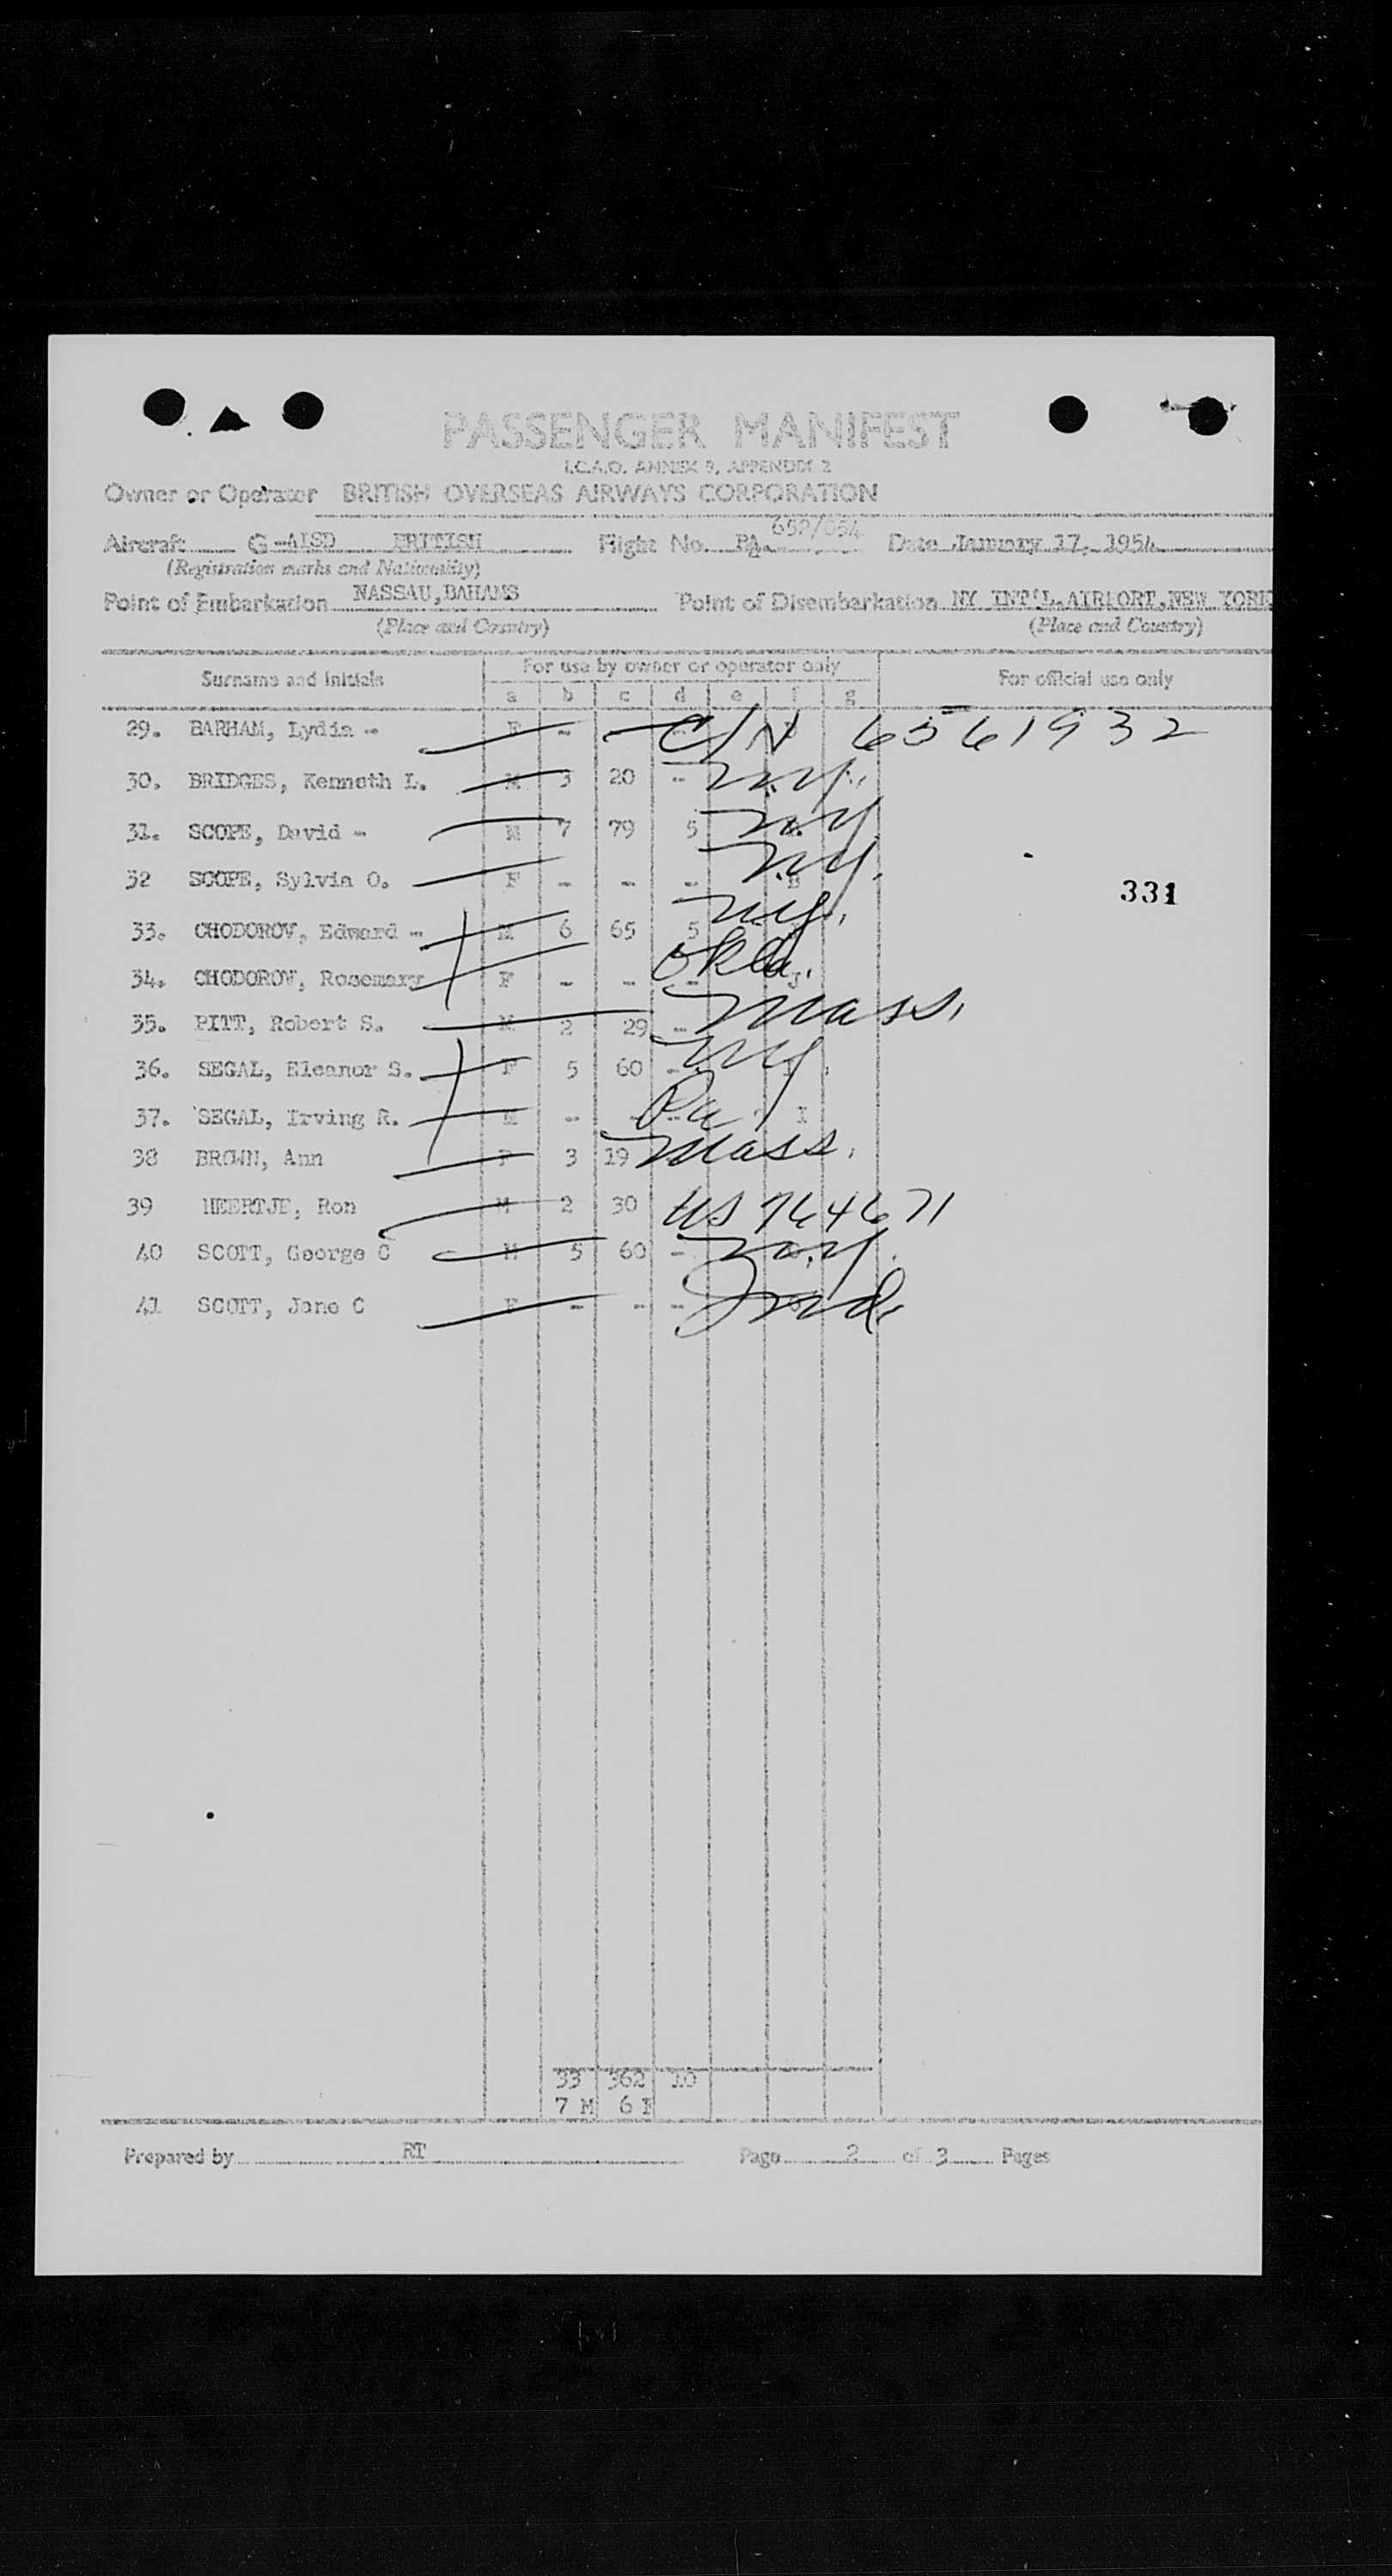 PASSENGER MANIFEST
I.C.A.O. ANNEX 9, APPENDIX 2
Owner or Operator BRITISH OVERSEAS AIRWAYS CORPORATION
Aircraft G-AISD BRITISH Flight No. BA. 652/654 Date January 17, 1954
(Registration marks and Nationality)
Point of Embarkation NASSAU, BAHAMS Point of Disembarkation NY INT'L. AIRPORT, NEW YORK
(Place and Country) (Place and Country)
Surname and initials For use by owner or operator only For official use only
a b c d e f g
29. BARHAM, Lydia - F - - C/N 6561932
30. BRIDGES, Kenneth L. M 3 20 - n.y.
31. SCOPE, David - M 7 79 5 n.y
32 SCOPE, Sylvia O. F - - - n.y.
331
33. CHODOROV, Edward - M 6 65 5 n.y.
34. CHODOROV, Rosemary F - - - Okla.
35. PITT, Robert S. M 2 29 - Mass.
36. SEGAL, Eleanor S. F 5 60 - ny
37. SEGAL, Irving R. M - - Pa I
38 BROWN, Ann F 3 19 Mass.
39 HEERTJE, Ron M 2 30 US 764671
40 SCOTT, George C M 5 60 - n.y.
41 SCOTT, Jane C F - - - Ind.
33 362 10
7 M 6 F
Prepared by RT Page 2 of 3 Pages